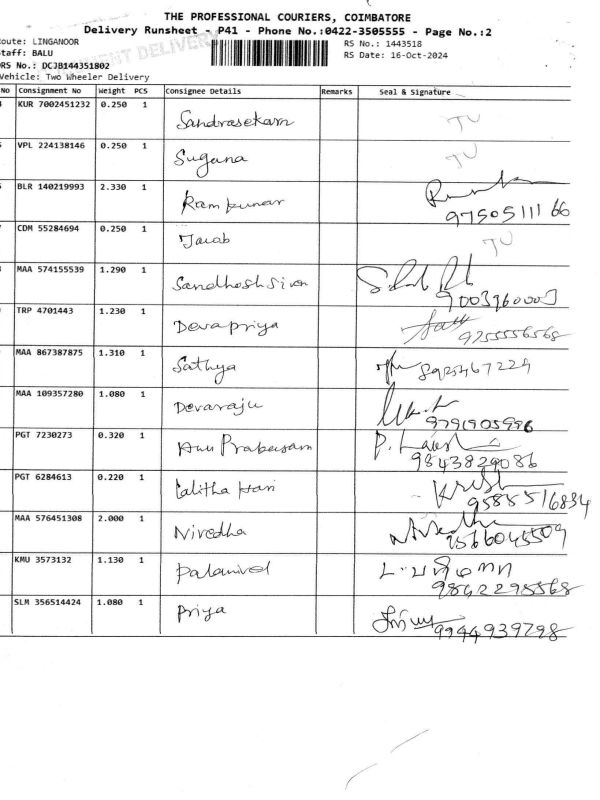 THE PROFESSIONAL COURIERS, COIMBATORE
Delivery Runsheet - P41 - Phone No.:0422-3505555 - Page No.:2
oute: LINGANOOR
RS No.: 1443518
taff: BALU
RS Date: 16-Oct-2024
DRS No.: DCJB144351802
Vehicle: Two Wheeler Delivery
DELIVERY
No Consignment No Weight PCS Consignee Details Remarks Seal & Signature
KUR 7002451232 0.250 1 Sandrasekam TU
VPL 224138146 0.250 1 Sugana TU
BLR 140219993 2.330 1 Ram kumar 9750511166
CDM 55284694 0.250 1 Jacob TU
MAA 574155539 1.290 1 Sandhosh Sivan 9003960003
TRP 4701443 1.230 1 Devapriya 9255556568
MAA 867387875 1.310 1 Sathya 8925467229
MAA 109357280 1.080 1 Devaraju 9791905996
PGT 7230273 0.320 1 Anu Prabeusam 9843829086
PGT 6284613 0.220 1 Lalitha Hari Krish 9585516834
MAA 576451308 2.000 1 Nivedha Nivedha 9566045509
KMU 3573132 1.130 1 Palanivel 9842295568
SLM 356514424 1.080 1 Priya 9944939298